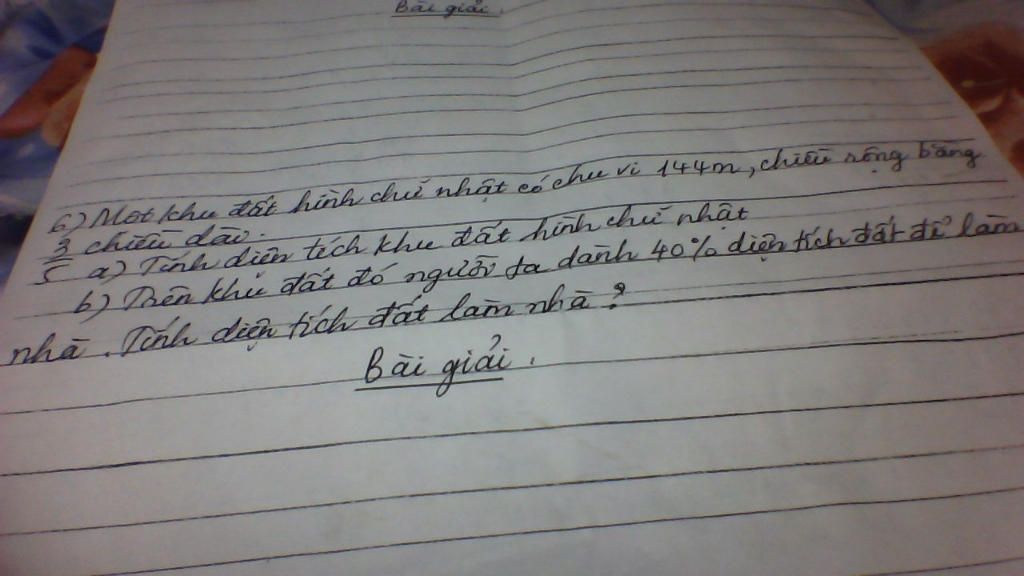 Bài giải.
6) Một khu đất hình chữ nhật có chu vi 144m, chiều rộng bằng
3/5 chiều dài.
a) Tính diện tích khu đất hình chữ nhật
b) Trên khu đất đó người ta dành 40% diện tích đất để làm
nhà. Tính diện tích đất làm nhà?
Bài giải.